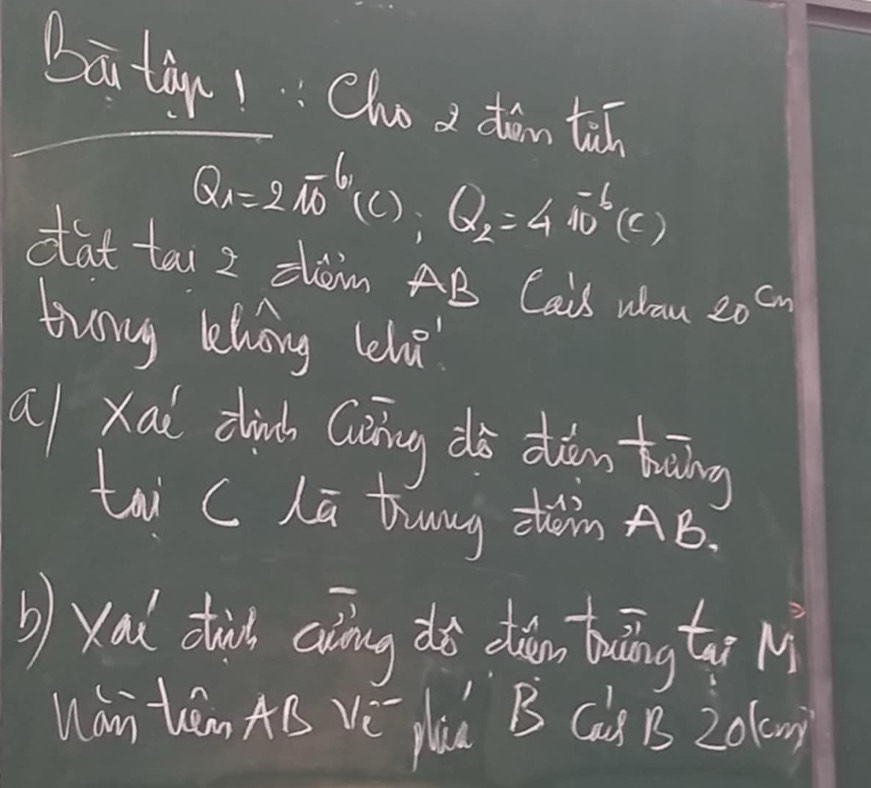 Bài tập 1 : Cho 2 điện tích
Q₁=2 10⁻⁶(C); Q₂=4 10⁻⁶(C)
đặt tại 2 điểm AB Cách nhau 20cm
trong không khí.
a/ Xác định Cường độ điện trường
tại C là trung điểm AB.
b) Xác định cường độ điện trường tại M
nằm trên AB về phía B Cách B 20(cm)